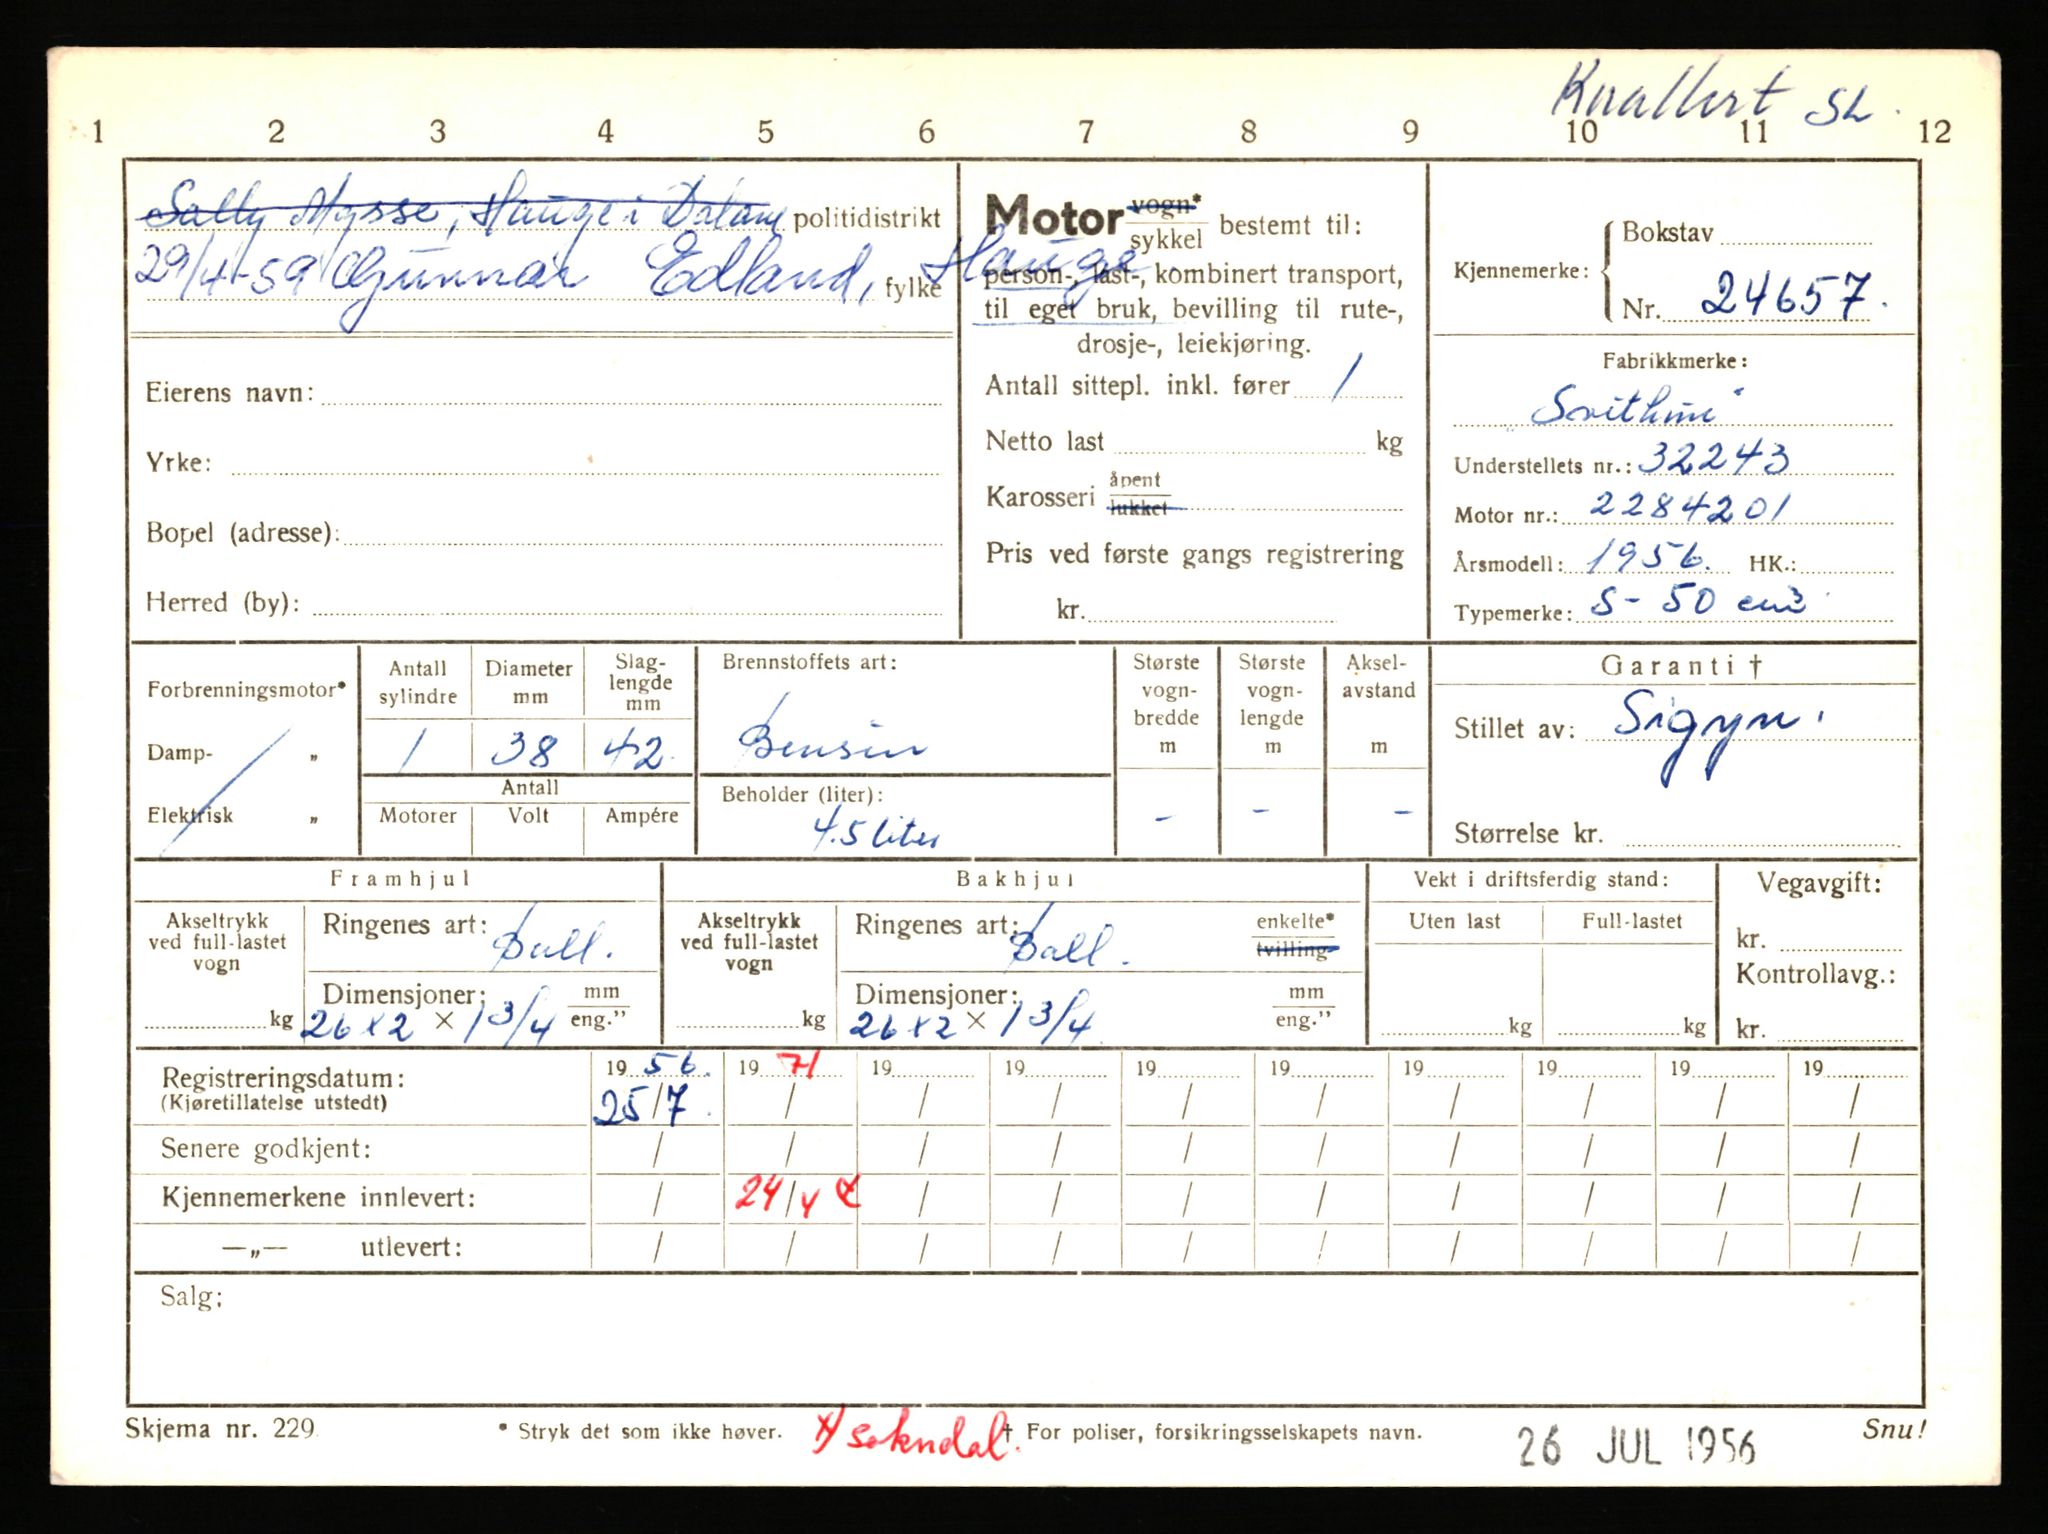 Knallert SL.
1 2 3 4 5 6 7 8 9 10 11 12
Sally Mysse, Hauge i Dalane politidistrikt
29/4-59 Gunnar Edland, Hauge fylke
Eierens navn:
Yrke:
Bopel (adresse):
Herred (by):
Motor vogn* sykkel bestemt til:
person-, last-, kombinert transport,
til eget bruk, bevilling til rute-,
drosje-, leiekjøring.
Antall sittepl. inkl. fører 1
Netto last kg
Karosseri åpent lukket
Pris ved første gangs registrering
kr.
Kjennemerke: Bokstav
Nr. 24657.
Fabrikkmerke:
"Svithun"
Understellets nr.: 32243
Motor nr.: 2284201
Årsmodell: 1956. HK.:
Typemerke: S- 50 cm3
Forbrenningsmotor*
Damp- „
Elektrisk „
Antall sylindre
Diameter mm
Slag-lengde mm
1 38 42
Antall
Motorer Volt Ampére
Brennstoffets art:
Bensin
Beholder (liter):
4.5 liter
Største vogn-bredde m
-
Største vogn-lengde m
-
Aksel-avstand m
-
Garanti †
Stillet av: Sigyn.
Størrelse kr.
Framhjul
Akseltrykk ved full-lastet vogn
kg
Ringenes art: Ball.
Dimensjoner: mm eng."
26 x 2 × 1 3/4
Bakhjul
Akseltrykk ved full-lastet vogn
kg
Ringenes art: Ball. enkelte* tvilling
Dimensjoner: mm eng."
26 x 2 × 1 3/4
Vekt i driftsferdig stand:
Uten last Full-lastet
kg kg
Vegavgift:
kr.
Kontrollavg.:
kr.
Registreringsdatum: 19 56. 19 71 19 19 19 19 19 19 19 19
(Kjøretillatelse utstedt) 25/7. / / / / / / / / /
Senere godkjent: / / / / / / / / / /
Kjennemerkene innlevert: / 24/4 x / / / / / / / /
—„— utlevert: / / / / / / / / / /
Salg:
Skjema nr. 229 * Stryk det som ikke høver. x) sokndal. † For poliser, forsikringsselskapets navn. 26 JUL 1956 Snu!